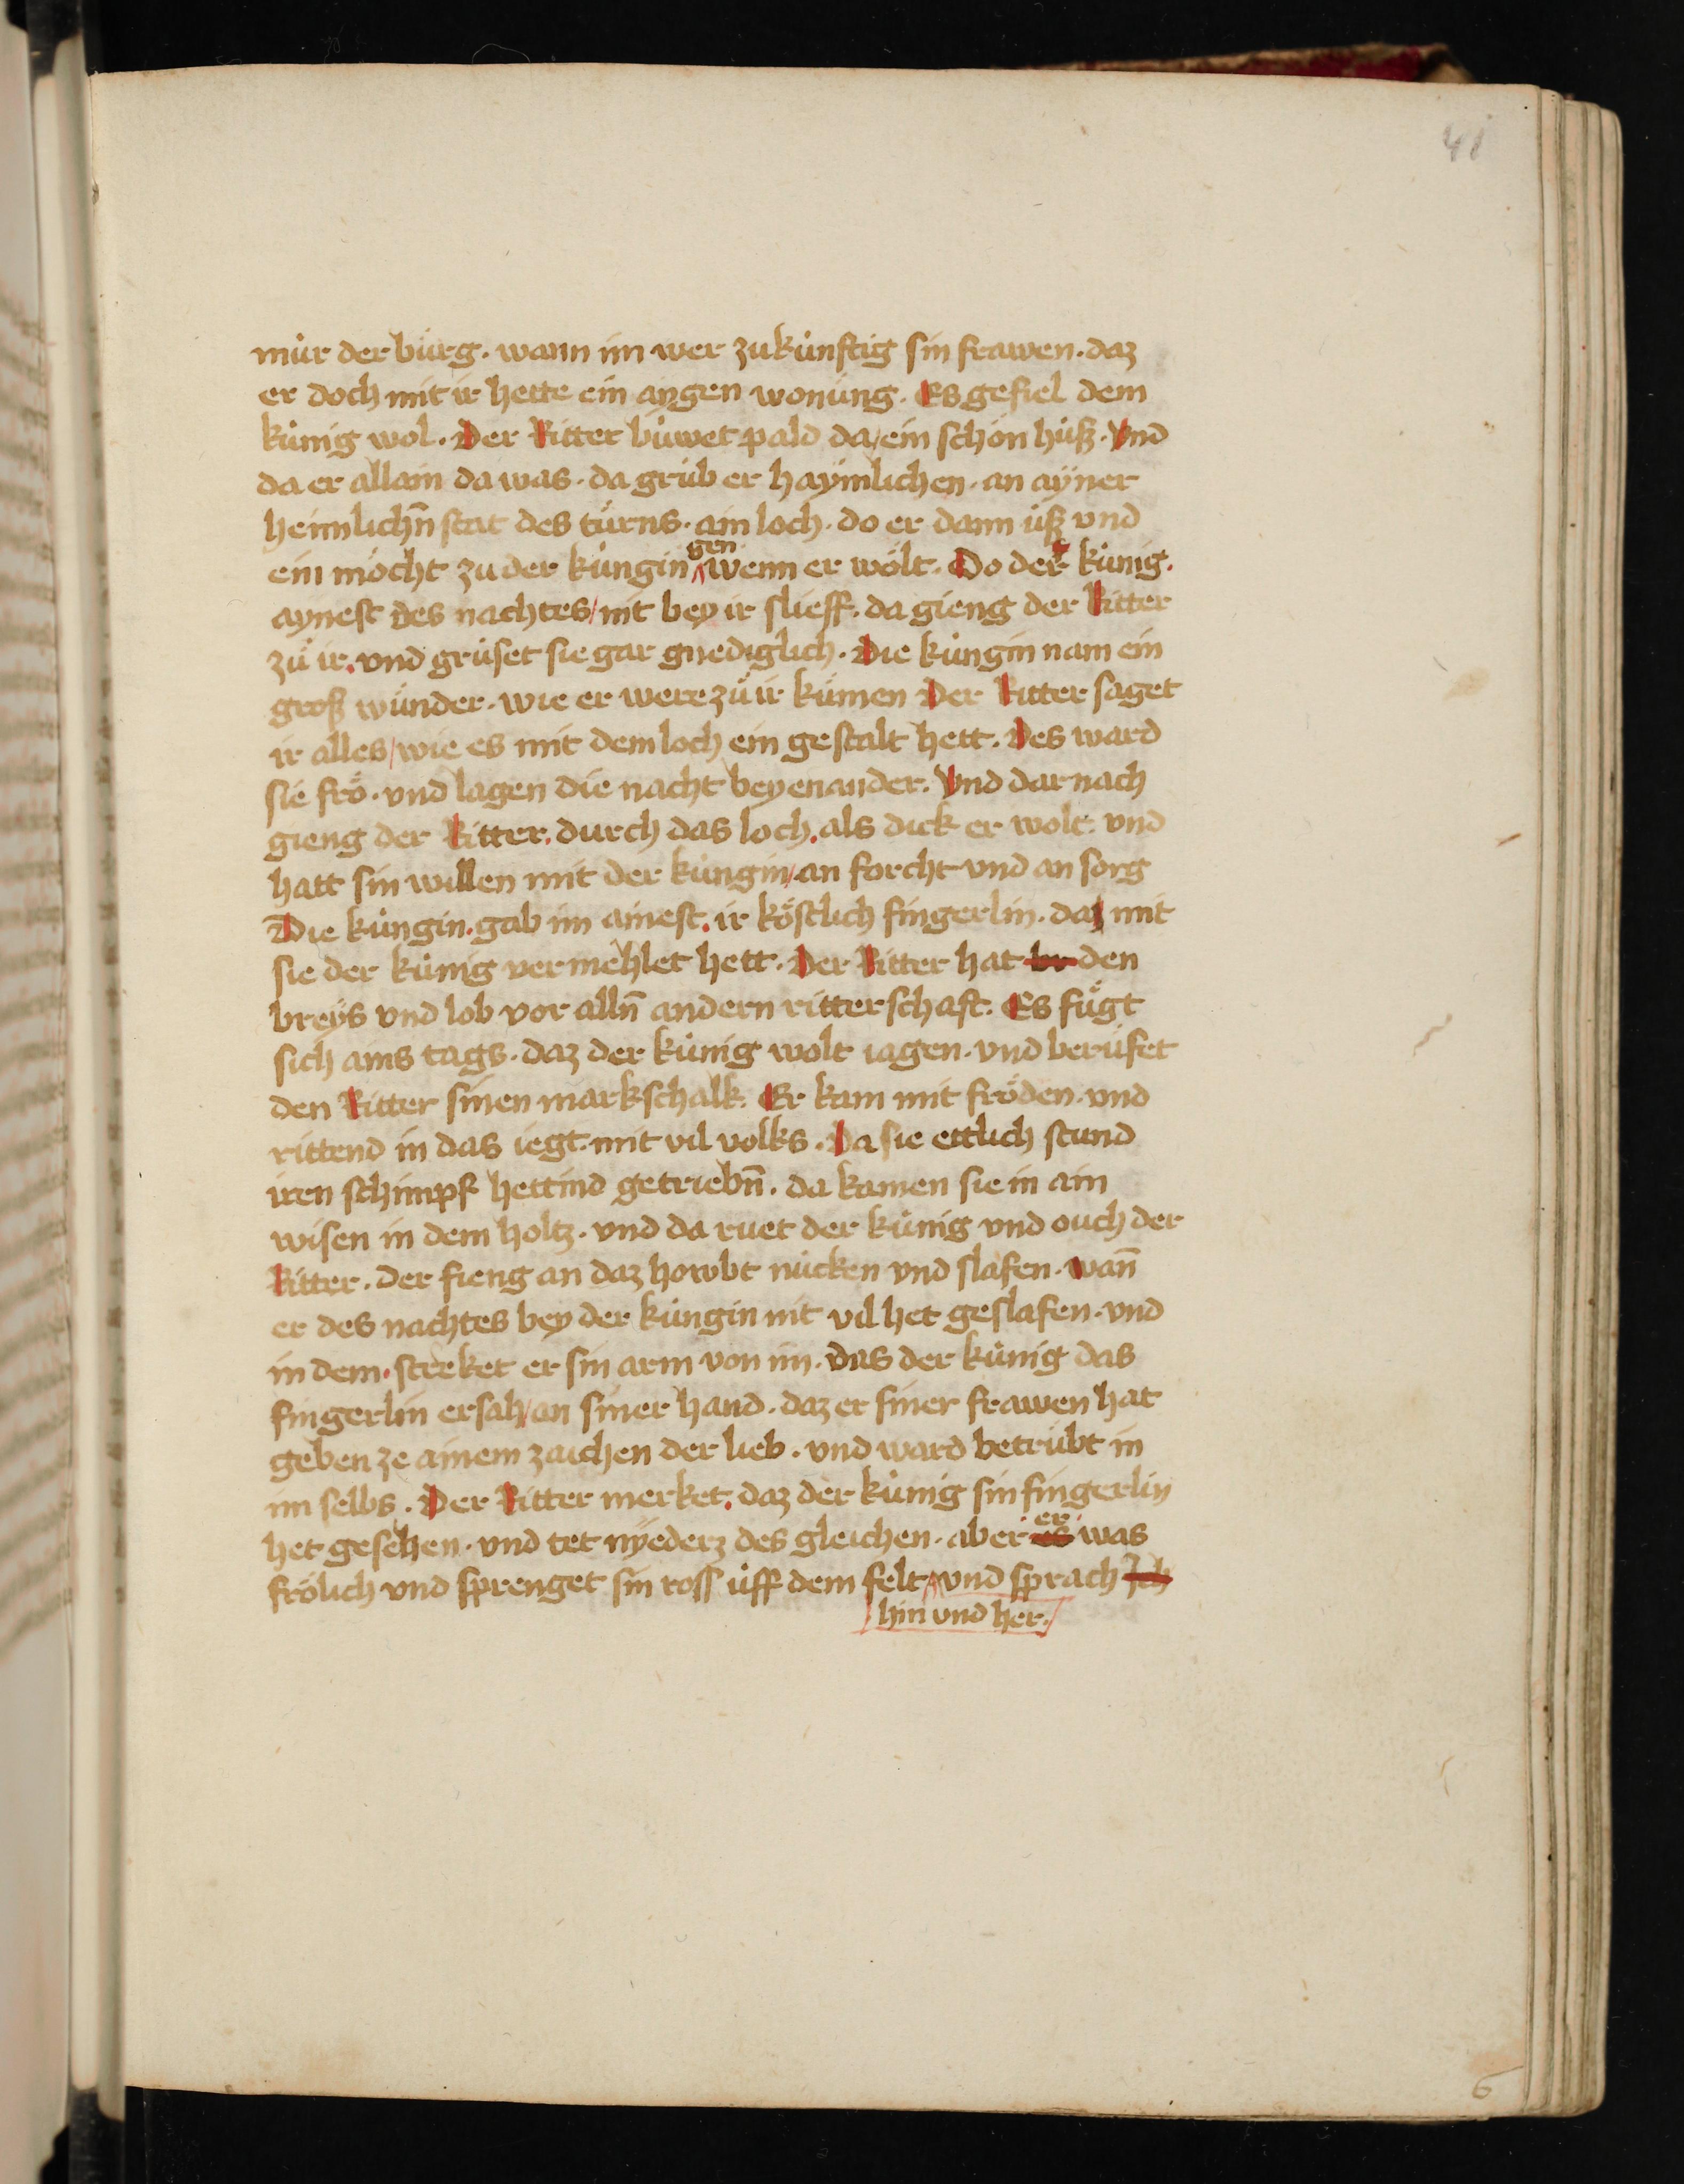 41
můr der bůrg. wann im wer zukůnftig sin frawen. daz
er doch mit ir hette ein aygen wonůng. Es gefiel dem
kůnig wol. Der Ritter bůwet pald da/ein schön hůß. Vnd
da er allain da was. da grůb er haymlichen. an ayner
heimlichn̄ stat des tůrns. ain loch. do er dann ůß vnd
ein möcht zu der kůngin gen wenn er wölt. Do der kůnig.
aynest des nachtes/nit bey ir slieff. da gieng der Ritter
zů ir. vnd grůset sie gar gnediglich. Die kůngin nam ein
groß wůnder. wie er were zů ir kůmen Der Ritter saget
ir alles/wie es mit dem loch ein gestalt hett. Des ward
sie frö. vnd lagen die nacht bey enander. Vnd dar nach
gieng der Ritter. durch das loch. als dick er wolt. vnd
hatt sin willen mit der kůngin/an forcht vnd an sorg
Die kůngin. gab im ainest. ir köstlich fingerlin. da mit
sie der kůnig vermehlet hett. Der Ritter hat br den
breys vnd lob vor alln̄ andern ritterschaft. Es fůgt
sich ains tags. daz der kůnig wolt iagen. vnd berůfet
den Ritter sinen markschalk. Er kam mit fröden. vnd
rittend in das iegt. mit vil volks. Da sie ettlich stund
iren schimpf hettind getriebn̄. da kamen sie in ain
wisen in dem holtz. vnd da ruet der kůnig vnd ouch der
Ritter. der fieng an daz howbt nůcken vnd slafen. wan̄
er des nachtes bey der kůngin nit vil het geslafen. vnd
in dem. streket er sin arm von im. das der kůnig das
fingerlin ersah/an siner hand. daz er siner frawen hat
geben ze ainem zaichen der lieb. vnd ward betrůbt in
im selbs. Der Ritter merket. daz der kůnig sin fingerlin
het gesehen. vnd tet nyederz des gleichen. aber es er was
frölich vnd sprenget sin ross ůff dem felt vnd sprach Ich
hin vnd her.
6